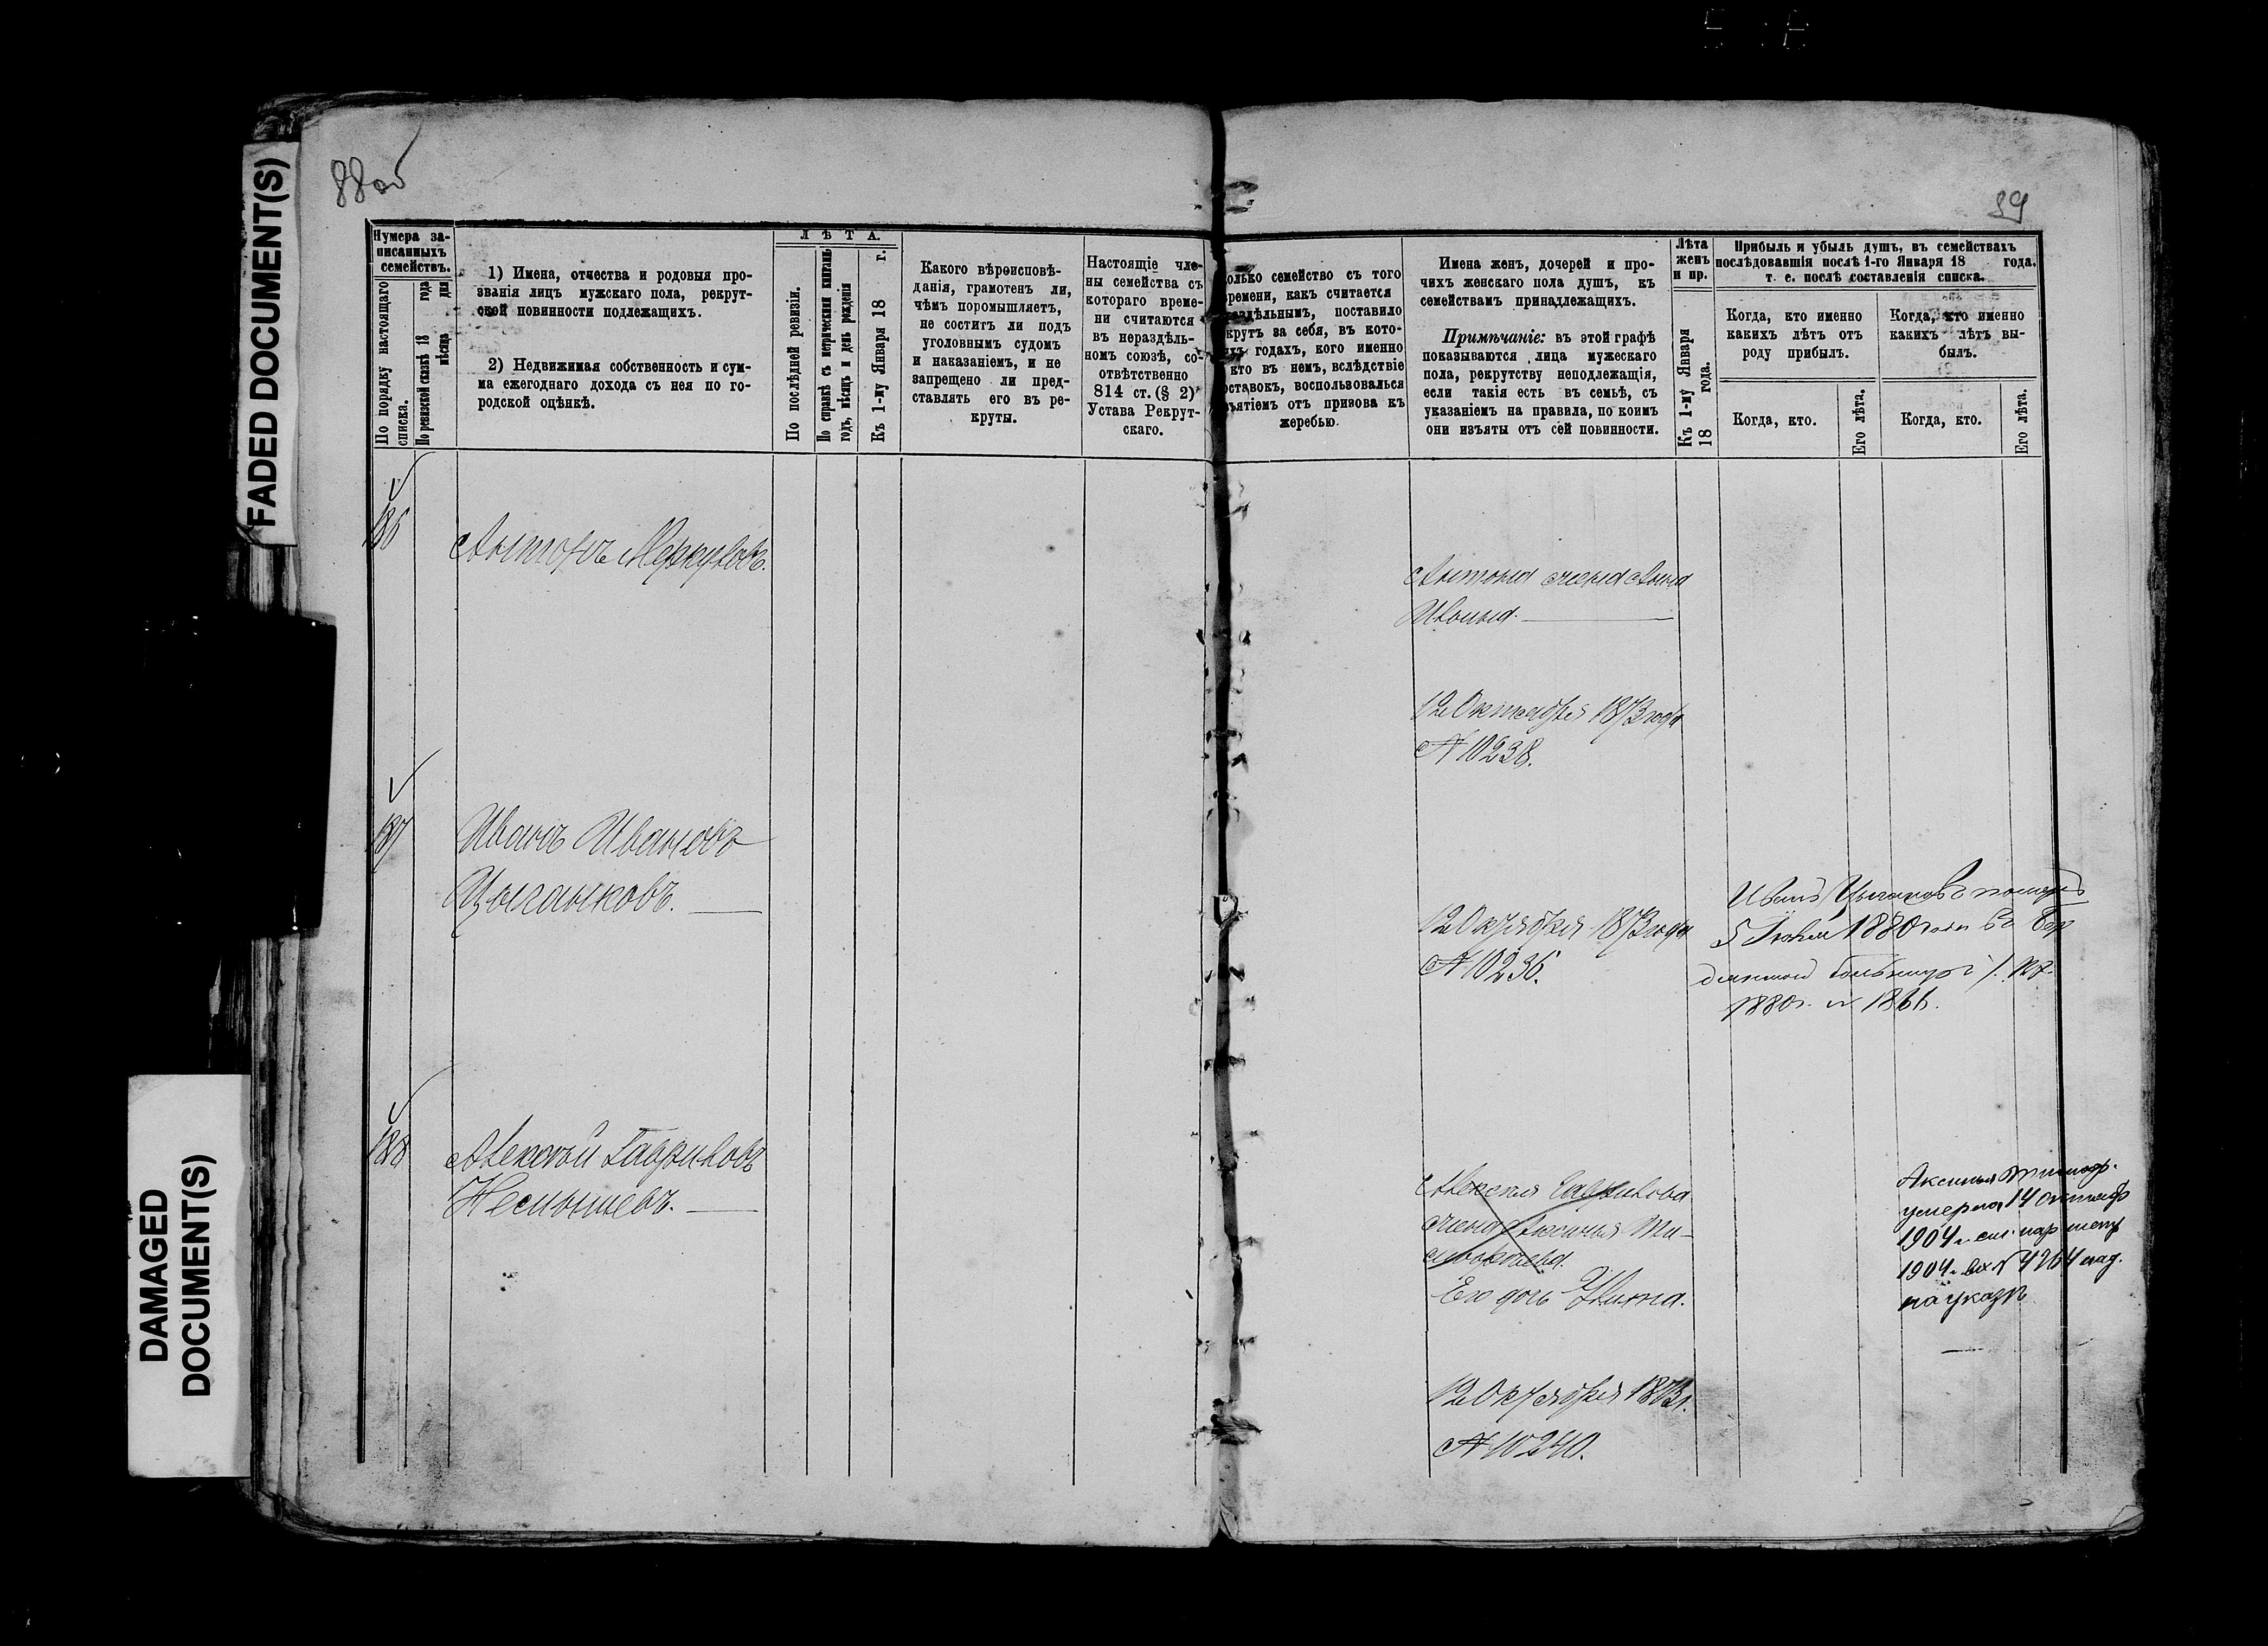 FADED DOCUMENT(S)
DAMAGED
DOCUMENT(S)
88 об
Нумера за-
писанныхъ
семействъ.
По порядку настоящаго
списка.
По ревизской сказкѣ 18 года
мѣсяца дня
1) Имена, отчества и родовыя про-
званія лицъ мужскаго пола, рекрут-
ской повинности подлежащихъ.
2) Недвижимая собственность и сум-
ма ежегоднаго дохода съ нея по го-
родской оцѣнкѣ.
ЛѢТА.
По послѣдней ревизіи.
По справкѣ съ метрическими книгами
годъ, мѣсяцъ и день рожденія
Къ 1-му Января 18 г.
Какого вѣроисповѣ-
данія, грамотенъ ли,
чѣмъ поромышляетъ,
не соститъ ли подъ
уголовнымъ судомъ
и наказаніемъ, и не
запрещено ли пред-
ставлять его въ ре-
круты.
Настоящіе чле-
ны семейства съ
котораго време-
ни считаются
въ нераздѣль-
номъ союзѣ, со-
отвѣтственно
814 ст. (§ 2)
Устава Рекрут-
скаго.
186
Антонъ Меркуловъ.
187
Иванъ Ивановъ
Цыганковъ.
188
Алексѣй Гавриловъ
Несмыш­евъ.
89
олько семейство съ того
ремени, какъ считается
здѣльнымъ, поставило
крутъ за себя, въ кото-
хъ годахъ, кого именно
кто въ немъ, вслѣдствіе
оставокъ, воспользовался
ъятіемъ отъ призова къ
жеребью.
Имена женъ, дочерей и про-
чихъ женскаго пола душъ, къ
семействамъ принадлежащихъ.
Примѣчаніе: въ этой графѣ
показываются лица мужескаго
пола, рекрутству неподлежащія,
если такія есть въ семьѣ, съ
указаніемъ на правила, по коимъ
они изъяты отъ сей повинности.
Лѣта
женъ
и пр.
Къ 1-му Января
18 года.
Прибыль и убыль душъ, въ семействахъ
послѣдовавшія послѣ 1-го Января 18 года.
т. е. послѣ составленія списка.
Когда, кто именно
какихъ лѣтъ отъ
роду прибылъ.
Когда, кто именно
какихъ лѣтъ вы-
былъ.
Когда, кто.
Его лѣта.
Когда, кто.
Его лѣта.
Антона жена Анна
Ивонина.
12 Октября 1873 года
№ 10238.
12 Октября 1873 года
№ 10236.
Иванъ Цыганковъ померъ
5 1880 года въ
больницѣ
1880 г. № 1866.
Алексѣя Гаврилова
жена Аксинья Ти-
мофѣева.
Его дочь
12 Октября 1873 г.
№ 10240.
Аксинья Тимоф.
умерла 14 октяб
1904 г.
1904 г. вх № 4264
по указу